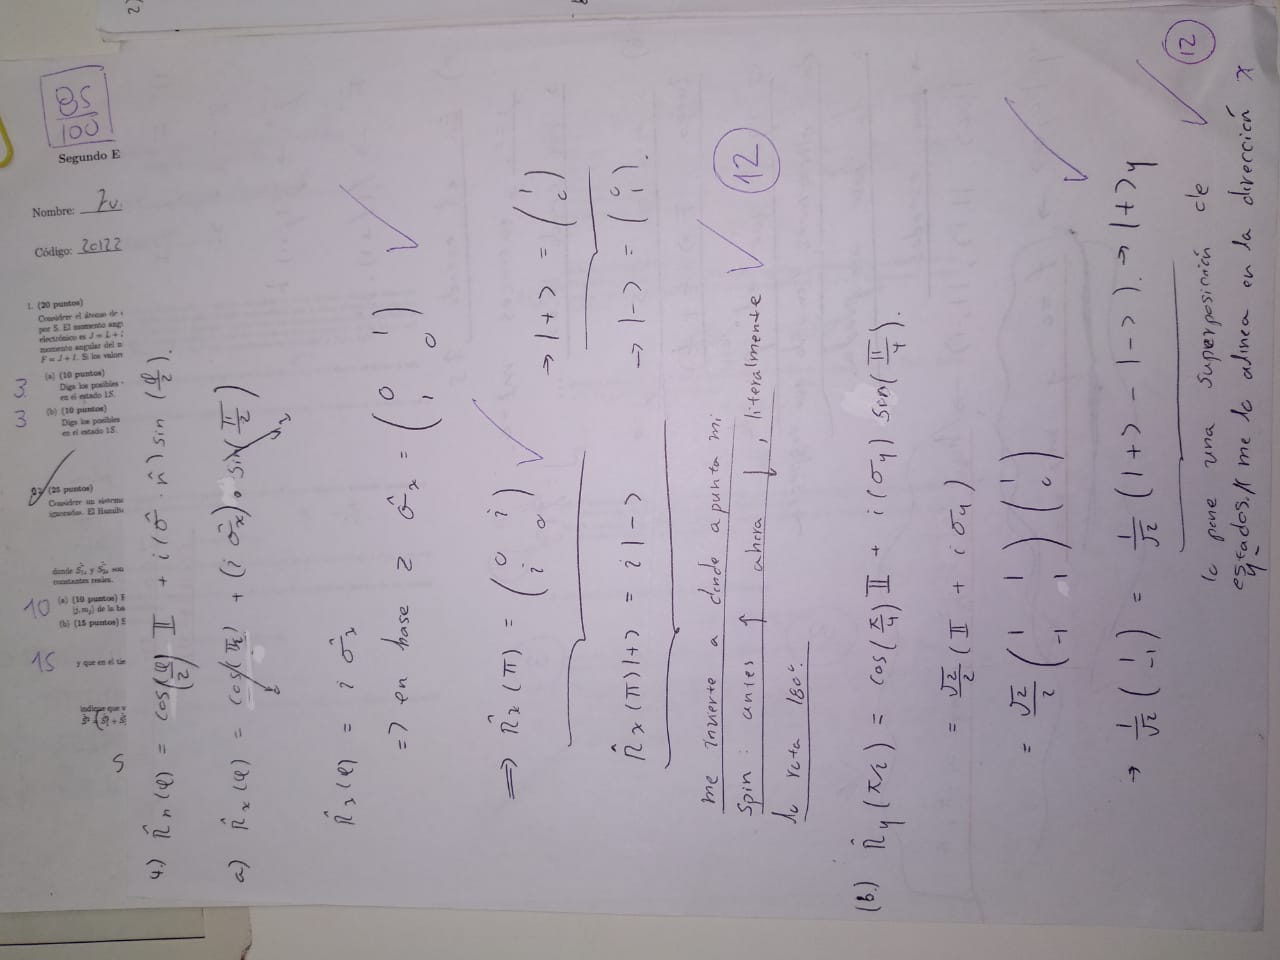 85
100
Segundo E
Nombre:
Código: 20122
1. (20 puntos)
Considere el átomo de
por S. El momento angu
electrónico es J = L +
momento angular del n
F = J + I. Si los valore
3 (a) (10 puntos)
Diga los posibles
en el estado 1S.
3 (b) (10 puntos)
Diga los posibles
en el estado 1S.
(25 puntos)
Considere un sistema
ignorados. El Hamilto
donde Ŝ₁, y Ŝ₂, son
constantes reales.
10 (a) (10 puntos) E
|j, mⱼ⟩ de la ba
(b) (15 puntos) S
15 y que en el tie
indique que v
5
4.) R̂n(φ) = cos(φ/2) 𝕀 + i(σ̂ · n̂) sin(φ/2).
a) R̂x(φ) = cos(π/2) + (i σ̂x) sin(π/2)
R̂x(φ) = i σ̂x
=> en base z σ̂x = (0 1; 1 0)
=> R̂x(π) = (0 i; i 0) → |+> = (1; 0)
R̂x(π)|+> = i|-> → |-> = (0; 1).
me invierte a donde apunta mi
spin: antes ↑ ahora ↓, literalmente
lo rota 180°.
12
(b.) R̂y(π/2) = cos(π/4) 𝕀 + i(σy) sin(π/4).
= √2/2 (𝕀 + i σy)
= √2/2 (1 1; -1 1)(1; 0)
→ 1/√2 (1; -1) = 1/√2 (|+> - |->). → |+>y
lo pone una superposición de
estados, y me lo alinea en la dirección x
12